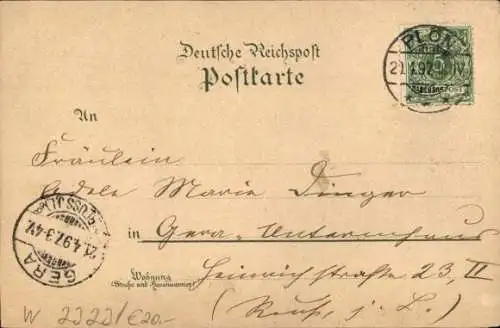 Deutsche Reichspost
Postkarte
An
Fräulein
Adele Marie Dinger
in Gera-Untermhaus
Wohnung
(Straße und Hausnummer)
Heinrichstraße 23, II
(Reuß, j. L.)
21.4.97
REICHSPOST
GERA
21.4.97. 3-4N.
W 2222/€20.-